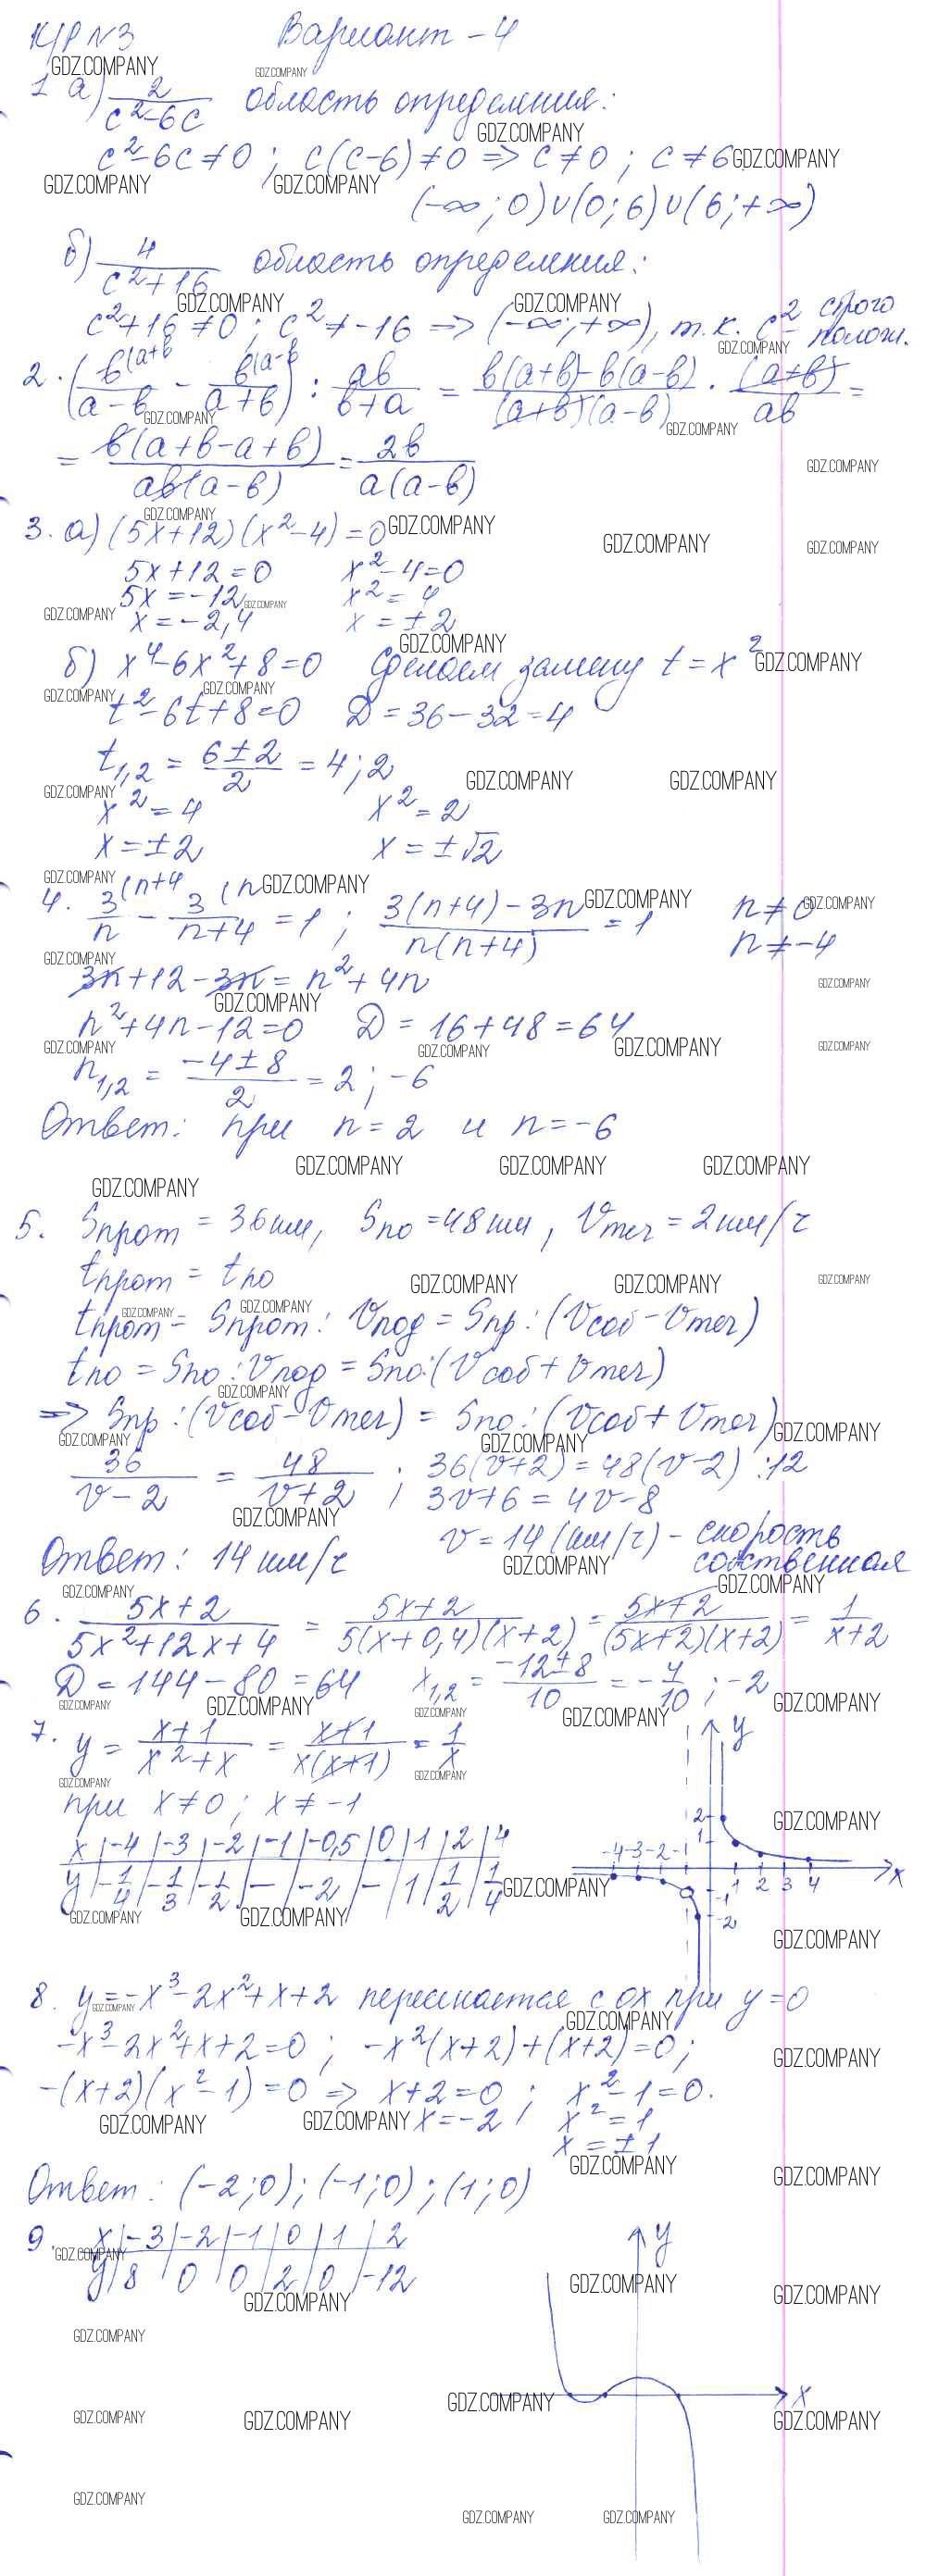 К/Р №3 Вариант - 4
1 а) 2/(c²-6c) область определения:
c²-6c≠0; c(c-6)≠0 => c≠0; c≠6
(-∞;0)∪(0;6)∪(6;+∞)
б) 4/(c²+16) область определения:
c²+16≠0; c²≠-16 => (-∞;+∞), т.к. c² строго полож.
2. (в(a+в/(a-в) - в(a-в/(a+в)) : aв/(в+a) = (в(a+в)-в(a-в))/((a+в)(a-в)) · (a+в)/aв =
= в(a+в-a+в)/(aв(a-в)) = 2в/(a(a-в))
3. а) (5x+12)(x²-4)=0
5x+12=0 x²-4=0
5x=-12 x²=4
x=-2,4 x=±2
б) x⁴-6x²+8=0 Сделаем замену t=x²
t²-6t+8=0 D=36-32=4
t₁,₂ = (6±2)/2 = 4; 2
x²=4 x²=2
x=±2 x=±√2
4. 3(n+4/n - 3(n/(n+4) = 1; (3(n+4)-3n)/(n(n+4)) = 1 n≠0
n≠-4
3n+12-3n = n²+4n
n²+4n-12=0 D=16+48=64
n₁,₂ = (-4±8)/2 = 2; -6
Ответ: при n=2 и n=-6
5. Sпрот = 36км, Sпо = 48км, Vтеч = 2км/ч
tпрот = tпо
tпрот = Sпрот : Vлод = Sпр : (Vсоб - Vтеч)
tпо = Sпо : Vлод = Sпо : (Vсоб + Vтеч)
=> Sпр : (Vсоб - Vтеч) = Sпо : (Vсоб + Vтеч)
36/(v-2) = 48/(v+2); 36(v+2) = 48(v-2) :12
3v+6 = 4v-8
v = 14 (км/ч) - скорость собственная
Ответ: 14 км/ч
6. (5x+2)/(5x²+12x+4) = (5x+2)/(5(x+0,4)(x+2)) = (5x+2)/((5x+2)(x+2)) = 1/(x+2)
D = 144-80 = 64 x₁,₂ = (-12±8)/10 = -4/10; -2
7. y = (x+1)/(x²+x) = (x+1)/(x(x+1)) = 1/x
при x≠0; x≠-1
x | -4 | -3 | -2 | -1 | -0,5 | 0 | 1 | 2 | 4
y | -1/4 | -1/3 | -1/2 | - | -2 | - | 1 | 1/2 | 1/4
y
2
1
-4 -3 -2 -1
1 2 3 4 x
-1
-2
8. y=-x³-2x²+x+2 пересекается с ox при y=0
-x³-2x²+x+2=0; -x²(x+2)+(x+2)=0;
-(x+2)(x²-1)=0 => x+2=0; x²-1=0.
x=-2; x²=1
x=±1
Ответ: (-2;0); (-1;0); (1;0)
9. x | -3 | -2 | -1 | 0 | 1 | 2
y | 8 | 0 | 0 | 2 | 0 | -12
y
x
GDZ.COMPANY